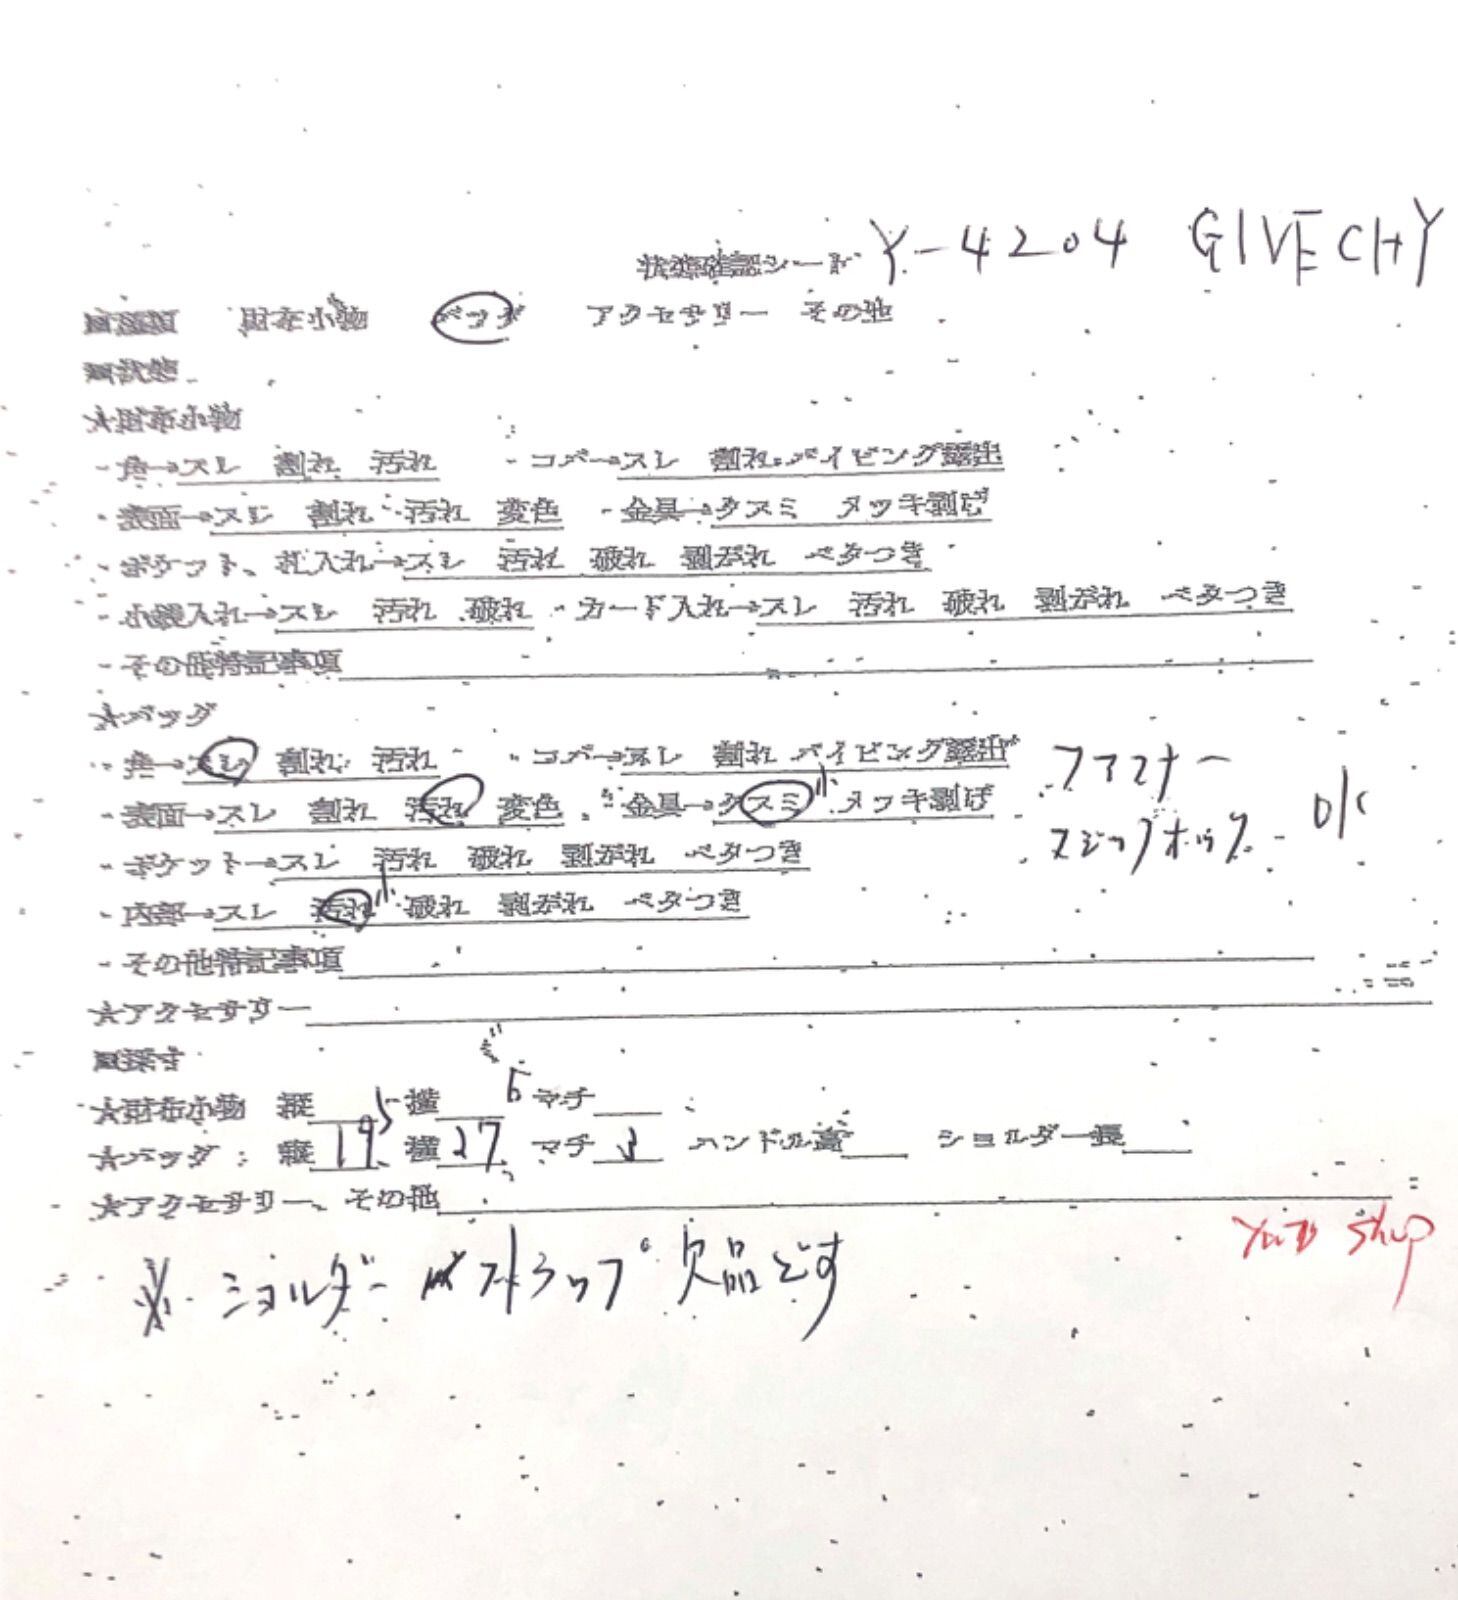 状態確認シート Y-4204 GIVECHY
■種類 財布小物 バッグ アクセサリー その他
■状態
★財布小物
・角→スレ 割れ 汚れ ・コバ→スレ 割れ パイピング露出
・表面→スレ 割れ 汚れ 変色 ・金具→クスミ メッキ剥げ
・ポケット、札入れ→スレ 汚れ 破れ 剥がれ ベタつき
・小銭入れ→スレ 汚れ 破れ ・カード入れ→スレ 汚れ 破れ 剥がれ ベタつき
・その他特記事項
★バッグ
・角→スレ 割れ 汚れ ・コバ→スレ 割れ パイピング露出 ファスナー
・表面→スレ 割れ 汚れ 変色 ・金具→クスミ 小 メッキ剥げ OK
・ポケット→スレ 汚れ 破れ 剥がれ ベタつき マジックホック
・内部→スレ 汚れ 小 破れ 剥がれ ベタつき
・その他特記事項
★アクセサリー
■採寸
★財布小物 縦 横 マチ
★バッグ：縦 19.5 横 27.5 マチ 3 ハンドル高 ショルダー長
★アクセサリー、その他
Yuz Shop
※ショルダーストラップ欠品です